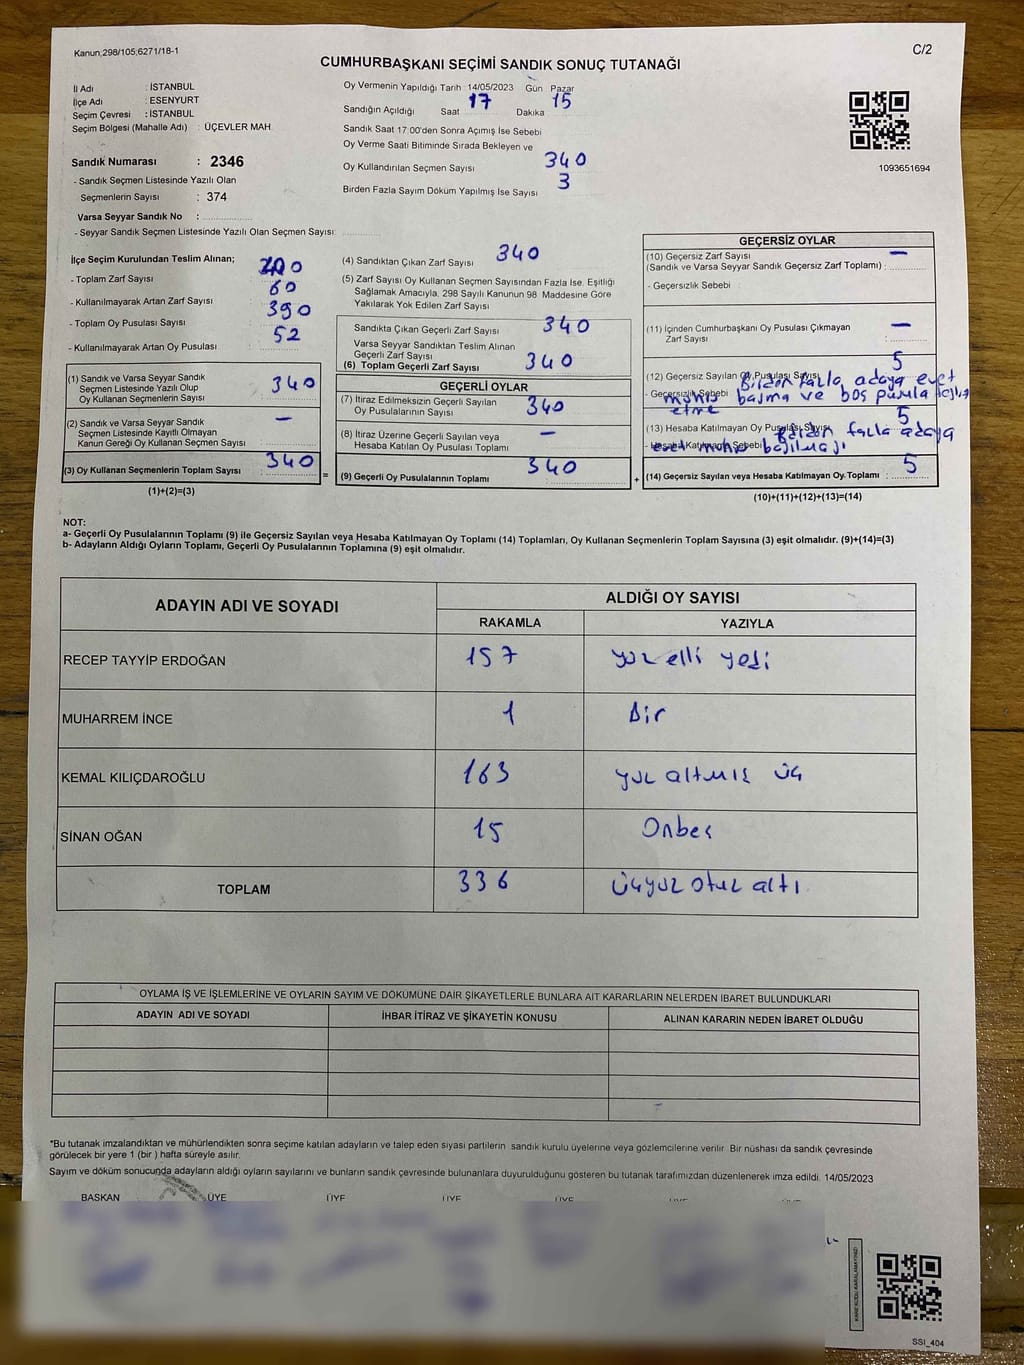 Kanun;298/105;6271/18-1
C/2
CUMHURBAŞKANI SEÇİMİ SANDIK SONUÇ TUTANAĞI
İl Adı : İSTANBUL
İlçe Adı : ESENYURT
Seçim Çevresi : İSTANBUL
Seçim Bölgesi (Mahalle Adı) : ÜÇEVLER MAH
Sandık Numarası : 2346
- Sandık Seçmen Listesinde Yazılı Olan
Seçmenlerin Sayısı : 374
Varsa Seyyar Sandık No :
- Seyyar Sandık Seçmen Listesinde Yazılı Olan Seçmen Sayısı:
Oy Vermenin Yapıldığı Tarih 14/05/2023 Gün Pazar
Sandığın Açıldığı Saat 17 Dakika 15
Sandık Saat 17:00'den Sonra Açımış İse Sebebi
Oy Verme Saati Bitiminde Sırada Bekleyen ve
Oy Kullandırılan Seçmen Sayısı 340
Birden Fazla Sayım Döküm Yapılmış İse Sayısı 3
1093651694
İlçe Seçim Kurulundan Teslim Alınan;
- Toplam Zarf Sayısı
- Kullanılmayarak Artan Zarf Sayısı 60
- Toplam Oy Pusulası Sayısı 390
- Kullanılmayarak Artan Oy Pusulası 52
(1) Sandık ve Varsa Seyyar Sandık
Seçmen Listesinde Yazılı Olup
Oy Kullanan Seçmenlerin Sayısı 340
(2) Sandık ve Varsa Seyyar Sandık
Seçmen Listesinde Kayıtlı Olmayan
Kanun Gereği Oy Kullanan Seçmen Sayısı –
(3) Oy Kullanan Seçmenlerin Toplam Sayısı 340
(1)+(2)=(3)
(4) Sandıktan Çıkan Zarf Sayısı 340
(5) Zarf Sayısı Oy Kullanan Seçmen Sayısından Fazla İse, Eşitliği
Sağlamak Amacıyla, 298 Sayılı Kanunun 98. Maddesine Göre
Yakılarak Yok Edilen Zarf Sayısı
Sandıkta Çıkan Geçerli Zarf Sayısı 340
Varsa Seyyar Sandıktan Teslim Alınan
Geçerli Zarf Sayısı
(6) Toplam Geçerli Zarf Sayısı 340
GEÇERLİ OYLAR
(7) İtiraz Edilmeksizin Geçerli Sayılan
Oy Pusulalarının Sayısı 340
(8) İtiraz Üzerine Geçerli Sayılan veya
Hesaba Katılan Oy Pusulası Toplamı –
= (9) Geçerli Oy Pusulalarının Toplamı 340
GEÇERSİZ OYLAR
(10) Geçersiz Zarf Sayısı –
(Sandık ve Varsa Seyyar Sandık Geçersiz Zarf Toplamı) :
- Geçersizlik Sebebi :
(11) İçinden Cumhurbaşkanı Oy Pusulası Çıkmayan –
Zarf Sayısı
(12) Geçersiz Sayılan Oy Pusulası Sayısı 5
- Geçersizlik Sebebi Birden fazla adaya evet
mührü basma ve boş pusula
etme
(13) Hesaba Katılmayan Oy Pusulası Sayısı 5
- Hesaba Katılmama Sebebi Birden fazla adaya
evet mührü
+ (14) Geçersiz Sayılan veya Hesaba Katılmayan Oy Toplamı : 5
(10)+(11)+(12)+(13)=(14)
NOT:
a- Geçerli Oy Pusulalarının Toplamı (9) ile Geçersiz Sayılan veya Hesaba Katılmayan Oy Toplamı (14) Toplamları, Oy Kullanan Seçmenlerin Toplam Sayısına (3) eşit olmalıdır. (9)+(14)=(3)
b- Adayların Aldığı Oyların Toplamı, Geçerli Oy Pusulalarının Toplamına (9) eşit olmalıdır.
ADAYIN ADI VE SOYADI ALDIĞI OY SAYISI
RAKAMLA YAZIYLA
RECEP TAYYİP ERDOĞAN 157 yüz elli yedi
MUHARREM İNCE 1 Bir
KEMAL KILIÇDAROĞLU 163 yüz altmış üç
SİNAN OĞAN 15 Onbeş
TOPLAM 336 üçyüz otuz altı
OYLAMA İŞ VE İŞLEMLERİNE VE OYLARIN SAYIM VE DÖKÜMÜNE DAİR ŞİKAYETLERLE BUNLARA AİT KARARLARIN NELERDEN İBARET BULUNDUKLARI
ADAYIN ADI VE SOYADI İHBAR İTİRAZ VE ŞİKAYETİN KONUSU ALINAN KARARIN NEDEN İBARET OLDUĞU
*Bu tutanak imzalandıktan ve mühürlendikten sonra seçime katılan adayların ve talep eden siyasi partilerin sandık kurulu üyelerine veya gözlemcilerine verilir. Bir nüshası da sandık çevresinde
görülecek bir yere 1 (bir) hafta süreyle asılır.
Sayım ve döküm sonucunda adayların aldığı oyların sayılarını ve bunların sandık çevresinde bulunanlara duyurulduğunu gösteren bu tutanak tarafımızdan düzenlenerek imza edildi. 14/05/2023
BAŞKAN ÜYE ÜYE ÜYE ÜYE ÜYE
KAREKODU KARALAMAYINIZ!
SSI_404